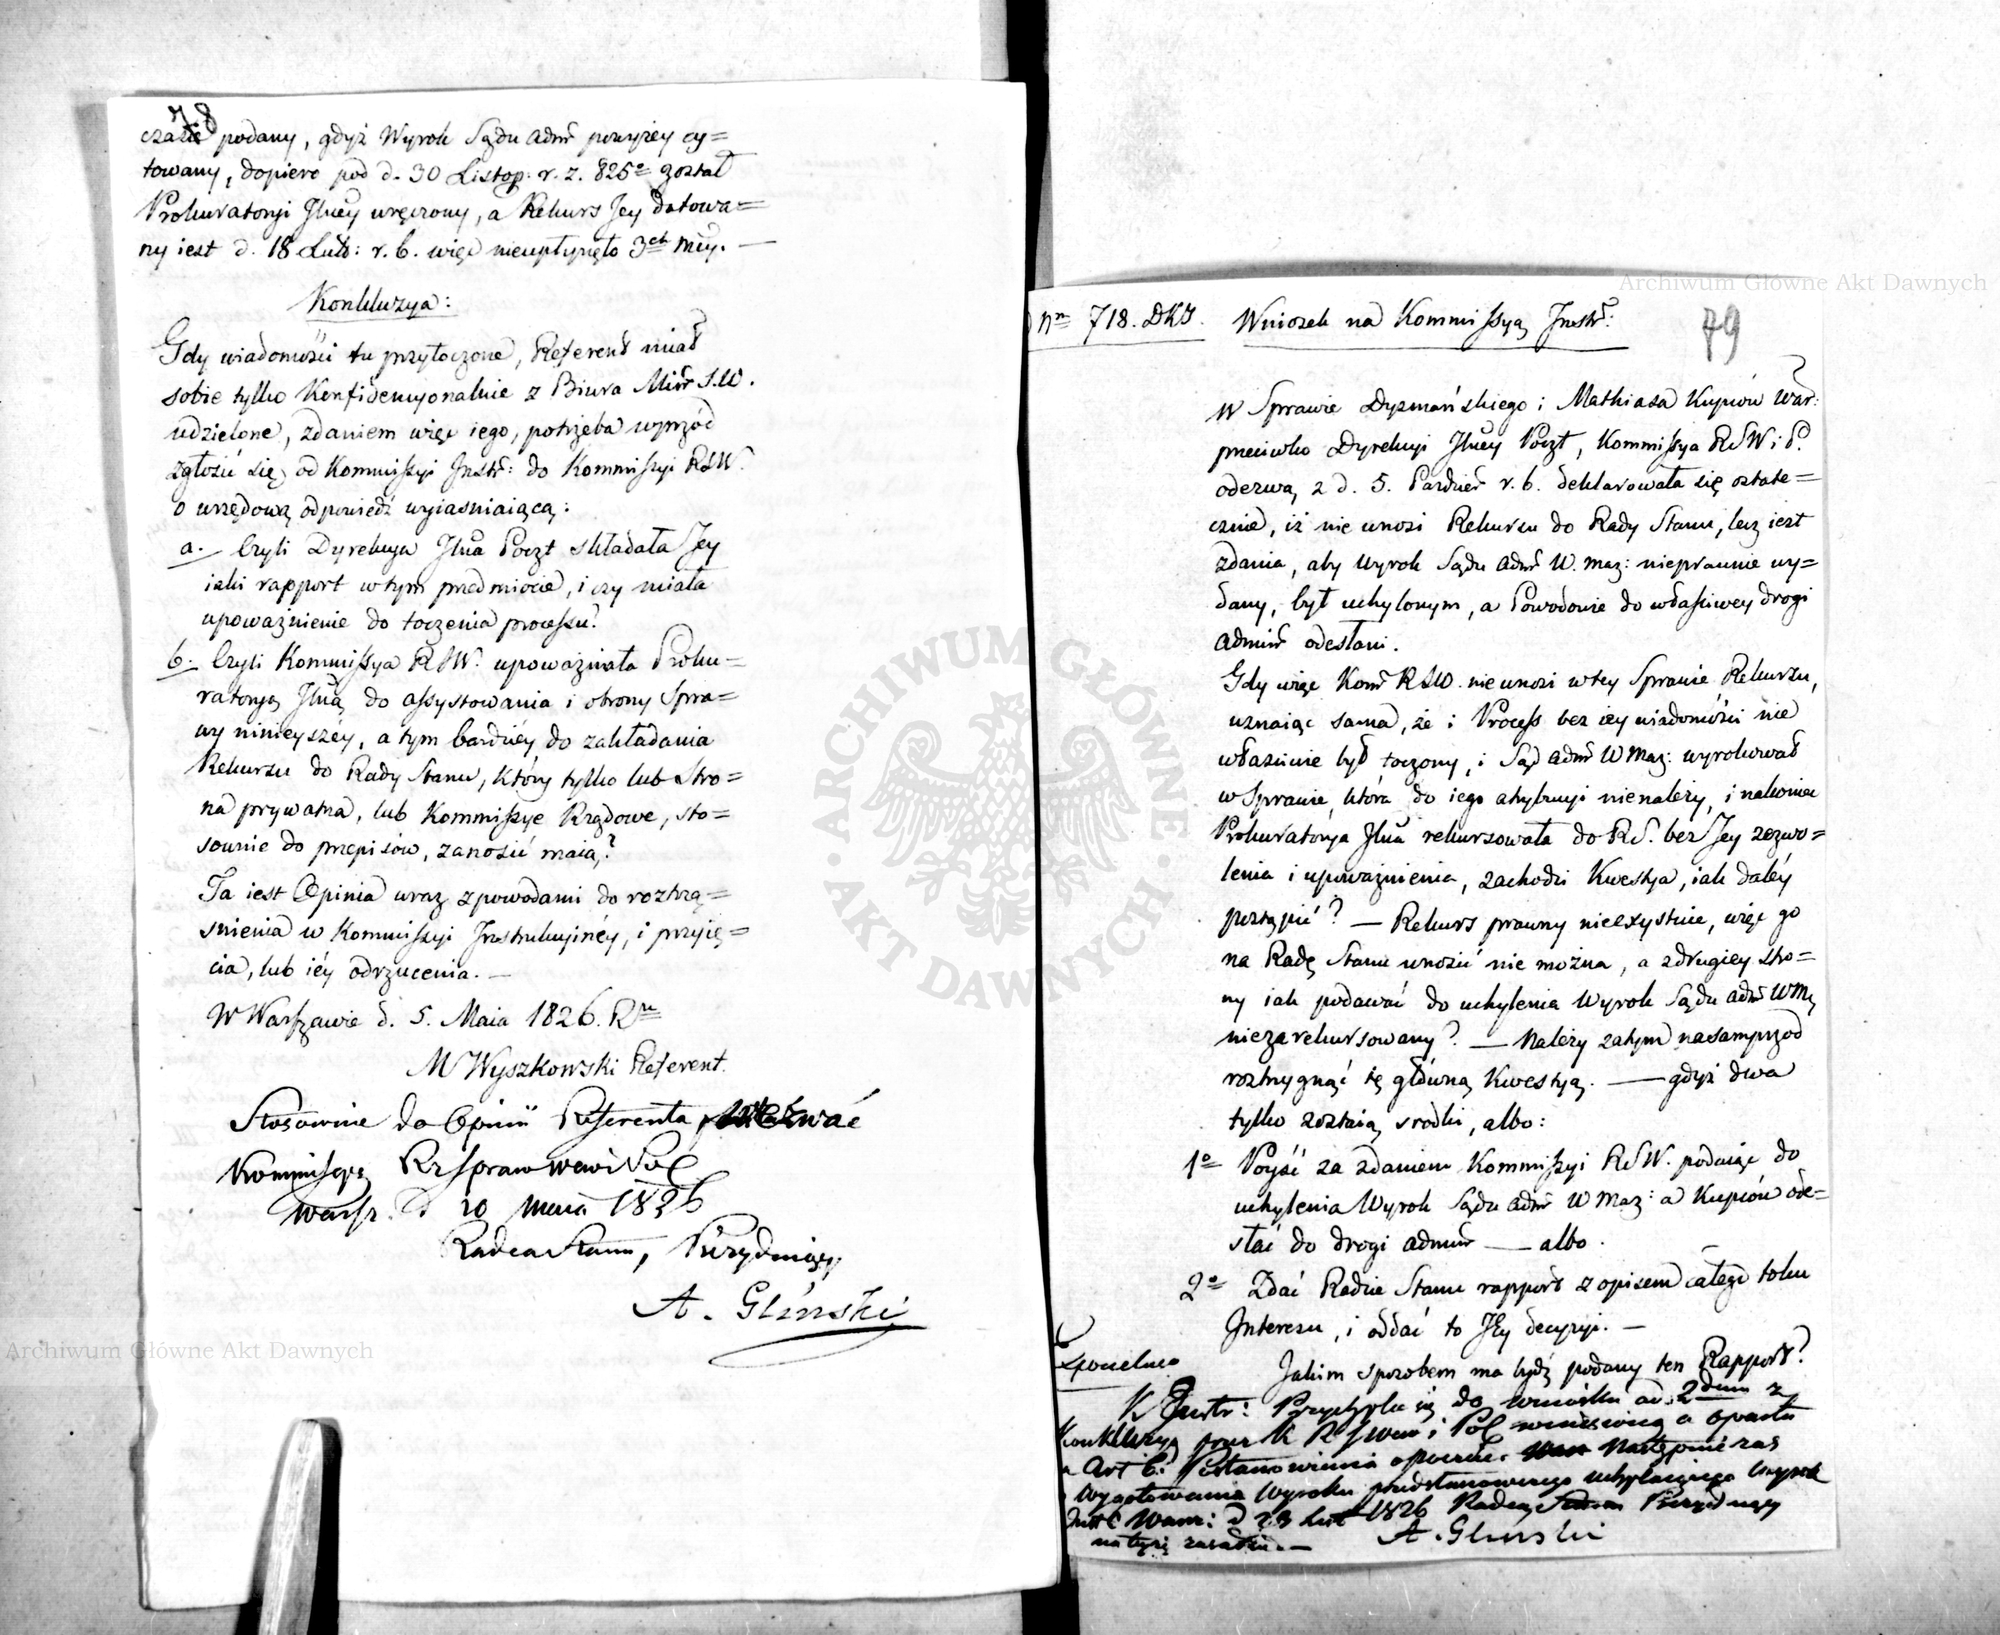 78
czasie podany, gdyż Wyrok Sądu admr powyżey cy=
towany, dopiero pod d. 30 Listop: r. z. 825o został
Prokuratoryi Jlney wręczony, a Rekurs Jey datowa=
ny iest d. 18 Lut: r. b. więc nieupłynęło 3ch mcy. —
Konkluzya:
Gdy wiadomości tu przytoczone, Referent miał
sobie tylko Konfidencyonalnie z Biura Minr S.W.
udzielone, zdaniem więc iego, potrzeba wprzód
zgłosić się od Kommissyi Instr: do Kommissyi RSW.
o urzędową odpowiedź wyiaśniaiącą:
a. Czyli Dyrekcya Jlna Poczt składała Jey
iaki rapport w tym przedmiocie, i czy miała
upoważnienie do toczenia processu?
b. Czyli Kommissya RSW. upoważniała Proku=
ratoryą Jlną do assystowania i obrony Spra=
wy ninieyszéy, a tym bardziéy do zakładania
Rekursu do Rady Stanu, który tylko lub Stro=
na prywatna, lub Kommissye Rządowe, sto=
sownie do przepisów, zanosić maią?
Ta iest Opinia wraz z powodami do roztrzą=
śnienia w Kommissyi Instrukcyinéy, i przyię=
cia, lub iéy odrzucenia. —
W Warszawie d. 5. Maia 1826. Ru
M Wyszkowski Referent.
Stosownie do Opinii Referenta wezwać
Kommissyą Rz spraw wew i Pol
Warsz. d 10 Maia 1826
Radca Stanu, Prezyduiący
A. Gliński
Nro 718. DKJ. Wniosek na Kommissyą Instr:
79
W Sprawie Dyzmańskiego i Mathiasa Kupców War:
przeciwko Dyrekcyi Jlney Poczt, Kommissya RSW i P.
odezwą z d. 5. Paździer r. b. deklarowała się ostate=
cznie, iż nie wnosi Rekursu do Rady Stanu, lecz iest
zdania, aby Wyrok Sądu admr W. Maz: nieprawnie wy=
dany, był uchylonym, a Powodowie do właściwey drogi
admin odesłani.
Gdy więc Kom RSW. nie wnosi w tey Sprawie Rekursu,
uznaiąc sama, że i Process bez iey wiadomości nie
właściwie był toczony, i Sąd admr W Maz: wyrokował
w Sprawie, która do iego atrybucyi nie należy, i nakoniec
Prokuratorya Jlna rekursowała do RS. bez Jey zezwo=
lenia i upoważnienia, zachodzi Kwestya, iak daléy
postąpić? — Rekurs prawny nieexystuie, więc go
na Radę Stanu wnosić nie można, a z drugiey stro=
ny iak podawać do uchylenia Wyrok Sądu admr WM,
niezarekursowany? — Należy zatym nasamprzód
roztrzygnąć tę główną Kwestyą. — gdyż dwa
tylko zostaią srodki, albo:
1o Póyść za zdaniem Kommissyi RSW. podaiąc do
uchylenia Wyrok Sądu admr W Maz: a Kupców ode=
słać do drogi admin — albo.
2o Zdać Radzie Stanu rapport z opisem całego toku
Interesu, i oddać to Jey decyzyi. —
Jakim sposobem ma bydź podany ten Rapport?
K Instr: Przychyla się do wniosku ad 2dum z
przez K R S Wew i Pol wniesioną a opartą
Art 6. Postanowienia Następnie zaś
wygotowania Wyroku przedstanowczego uchylaiącego Wyrok
1826 Radca Stanu Prezyduiący
A. Gliński